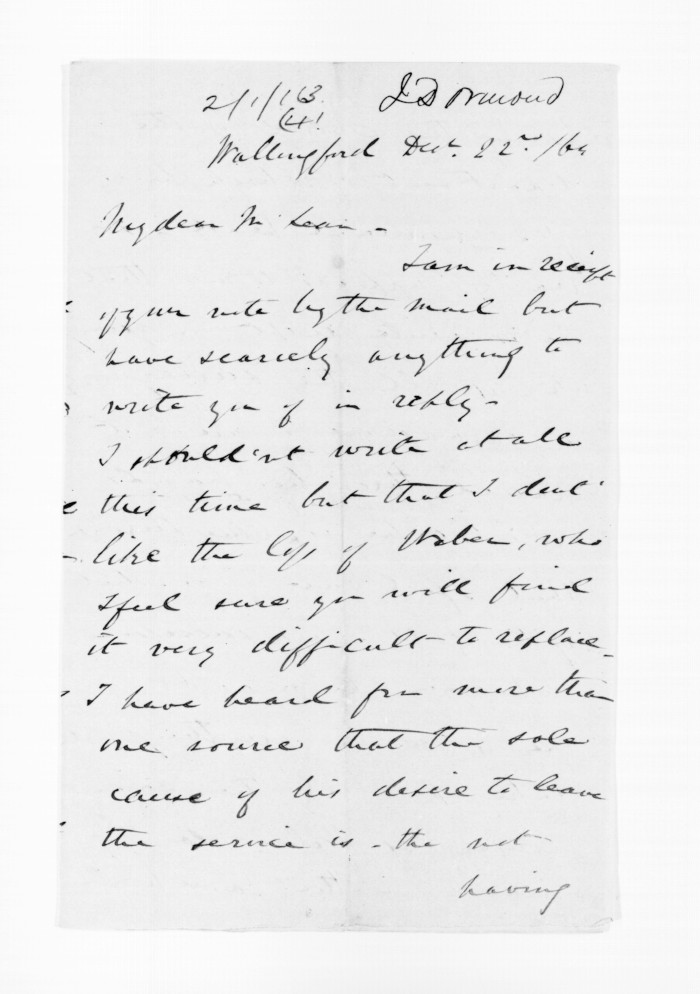 J D Ormond
2/1/163
(4)
Wallingford Decr. 22nd /64
My dear McLean -
I am in receipt
of your note by the mail but
have scarcely anything to
write you of in reply -
I shouldn't write at all
this time but that I dont
like the loss of Weber, who
I feel sure you will find
it very difficult to replace -
I have heard from more than
one source that the sole
cause of his desire to leave
the service is - the not
having